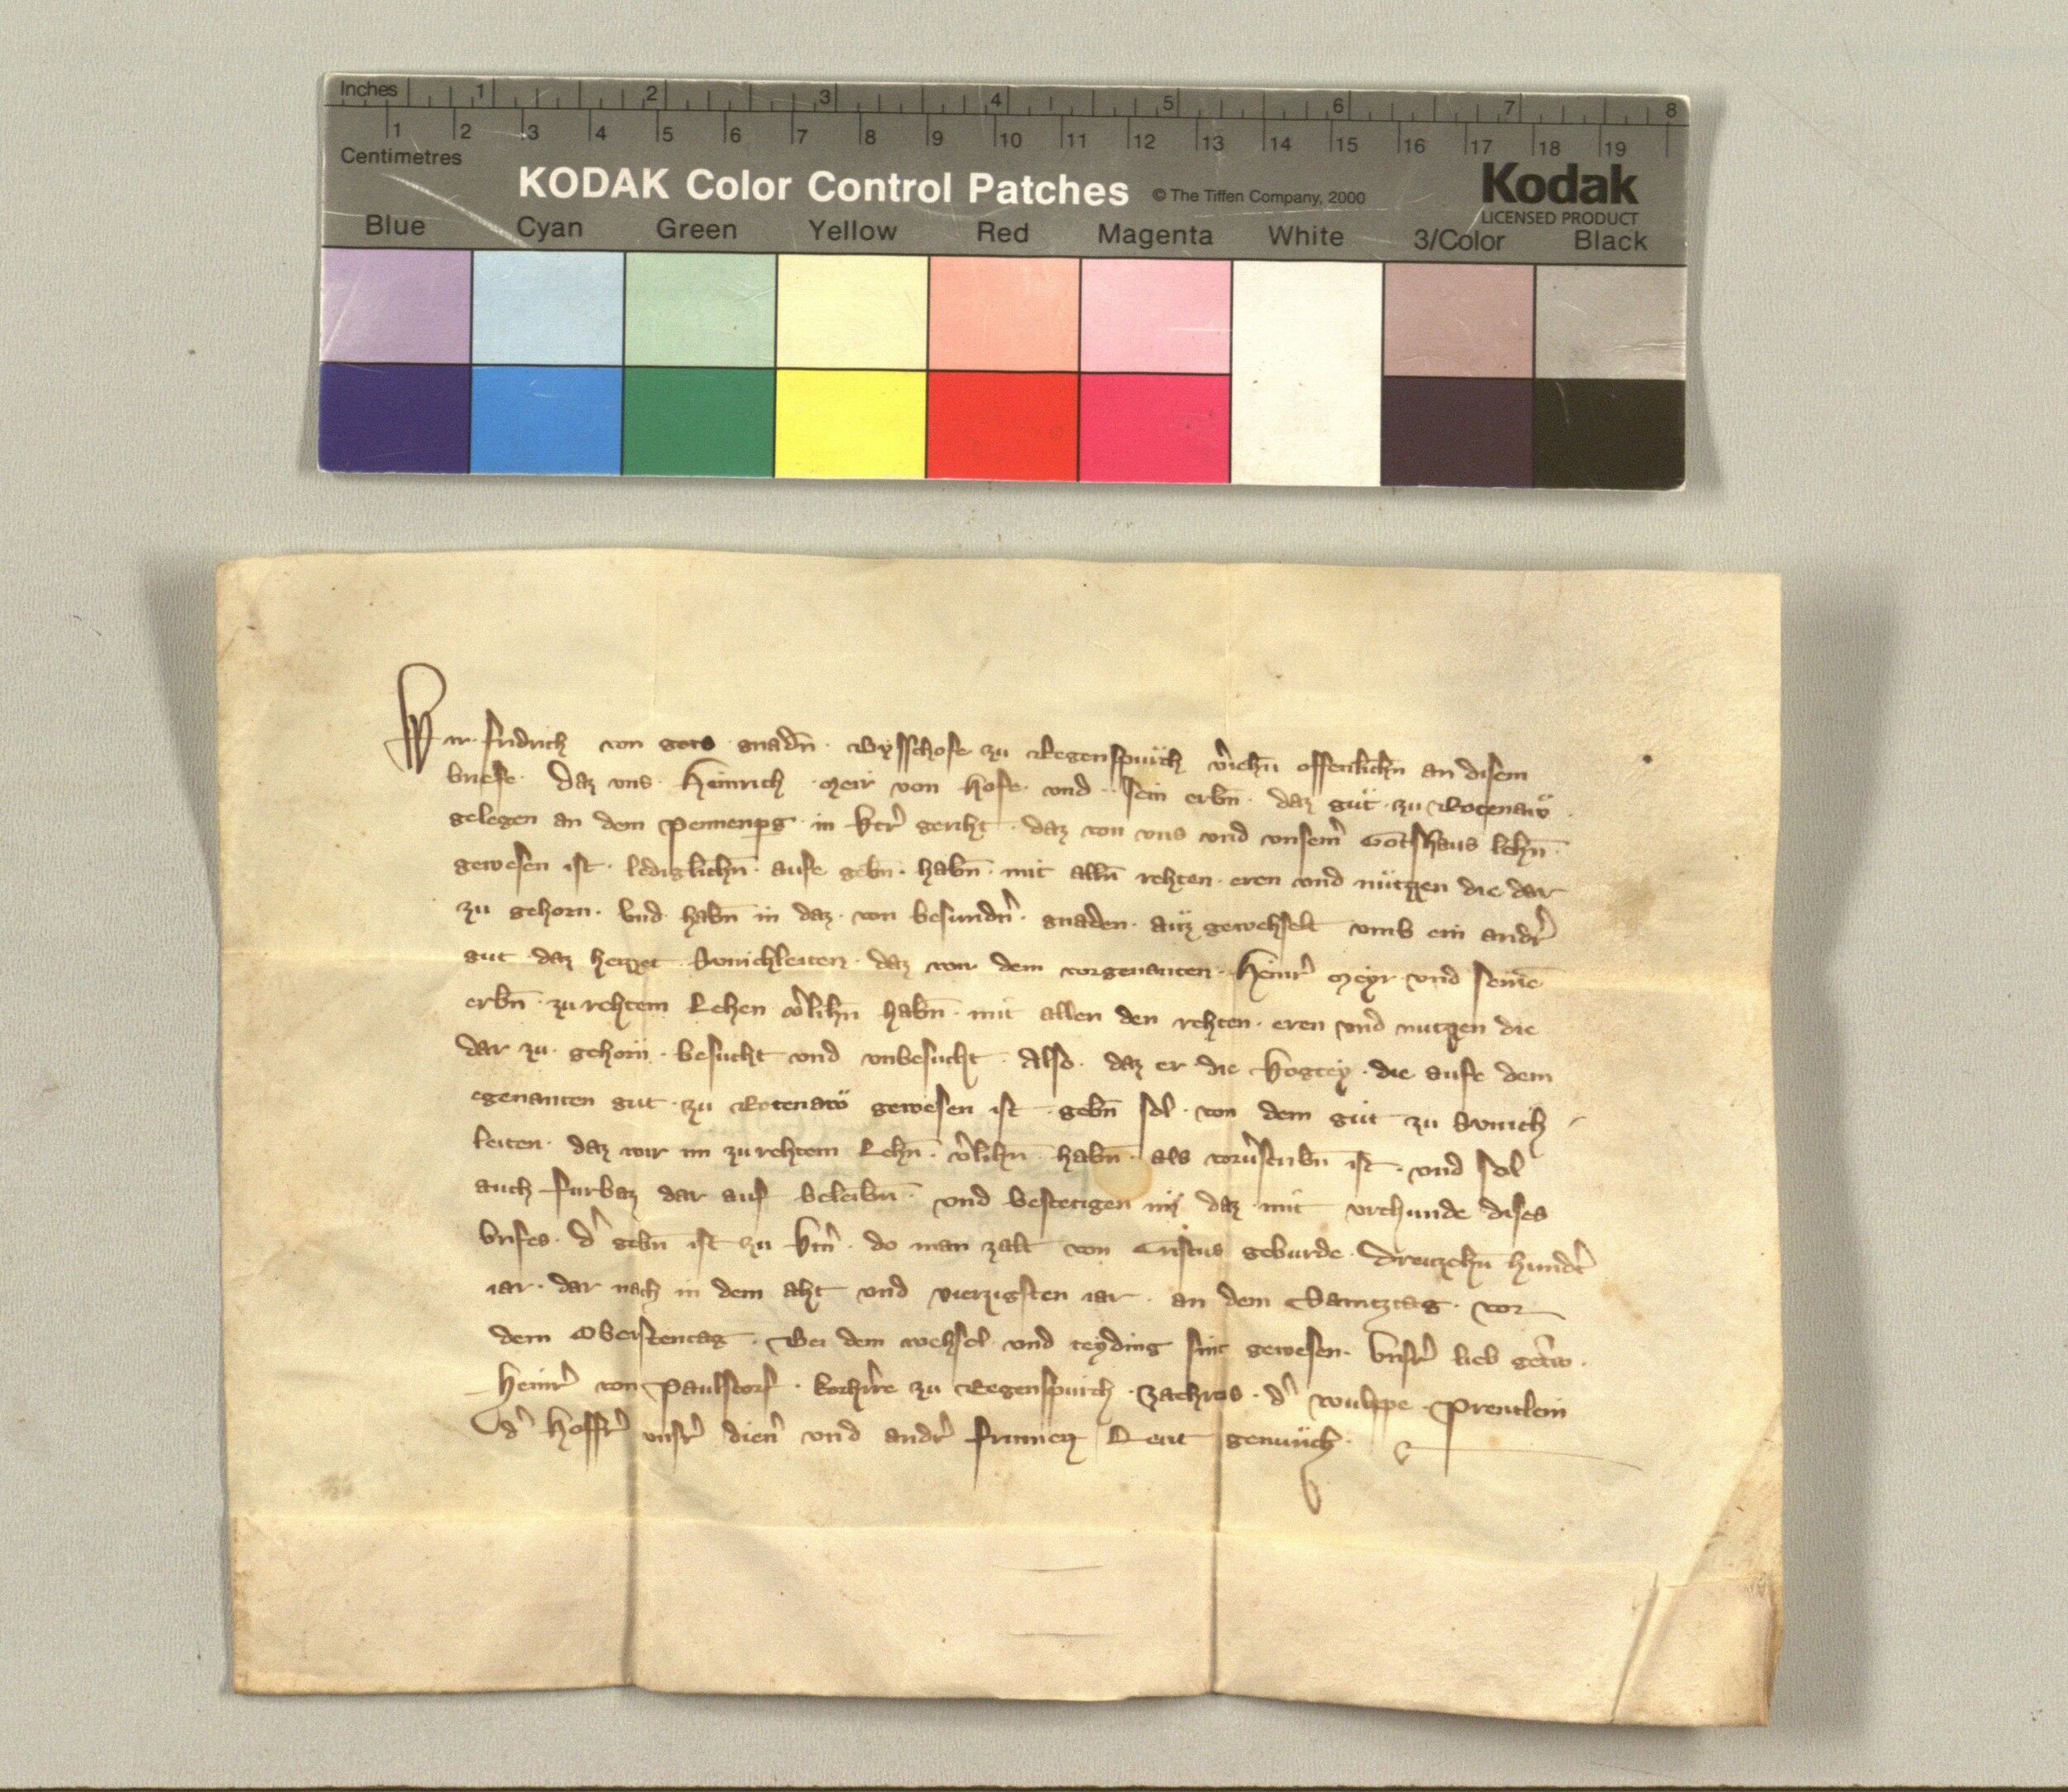 Inches 1 2 3 4 5 6 7 8
1 2 3 4 5 6 7 8 9 10 11 12 13 14 15 16 17 18 19
Centimetres
KODAK Color Control Patches © The Tiffen Company, 2000 Kodak
LICENSED PRODUCT
Blue Cyan Green Yellow Red Magenta White 3/Color Black
Wir fridrich von gots gnadn̄ · Bysschofe zu Regenspurch v̓iehn̄ offenlichn̄ an disem
briefe · Daz vns · Heinrich · Meir von Hofe · vnd · sein erbn̄ · daz gůt · zu Rotenaw ·
gelegen an dem pennenpg · in geriht · daz von vns vnd vnserm̓ Gotshaus lehn̄ ·
gewesen ist · lediglichn̄ · aufe gebn̄ · habn̄ · mit alln̄ rehten · eren vnd nützzen die dar
zu gehorn · Vnd habn̄ in daz · von besundn̓ · gnaden · auz gewehselt vmb ein andr̓
gut daz heizzet daz von dem vorgenanten · Heinr̓ Meyr vnd seinē
erbn̄ · zu rehtem Lehen v̓lihn̄ habn̄ · mit allen den rehten · eren vnd nutzen die
dar zu · gehorn̄ · besucht vnd vnbesucht · Also · daz er die Vogtey · die aufe dem
egenanten gut · zu Rotenaw gewesen ist · gebn̄ sol · von dem gůt zu
leiten · daz wir im zu rehtem Lehn̄ · v̓lihn̄ habn̄ · als vorv̓scribn̄ ist · vnd sol
auch furbaz dar auf beleibn̄ · vnd bestetigen im daz · mit vrchunde dises
brifes · d̓ gebn̄ ist zu · do man zalt von Cristus geburde · Dreutzehn̄ hundr̓t
iar · dar nach in dem aht vnd vierzigsten iar · an dem Samtztag · vor
dem Oberstentag · Bei dem wehsel vnd teyding sint gewesen · vnsr̓ lieb getr̓w ·
Heinr̓ von Paulstorf · korhr̓re zu Regenspurch · Zachreis · d̓ Prentlein
d̓ Hoffr̓ vnsr̓ dien̓ vnd andr̓ frumen Leut genuͤch ·